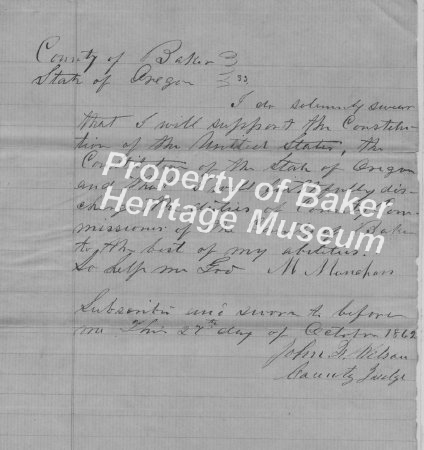 County of Baker
State of Oregon } ss
I do solemnly swear
that I will support the Constitu-
tion of the United States, the
Constitution of the State of Oregon
and that I will faithfully dis-
charge the duties of County Com-
missioner of the County of Baker
to the best of my abilities.
So help me God M
Subscribed and sworn to before
me this 27th day of October 1862
John Wilson
County Judge
Property of Baker
Heritage Museum